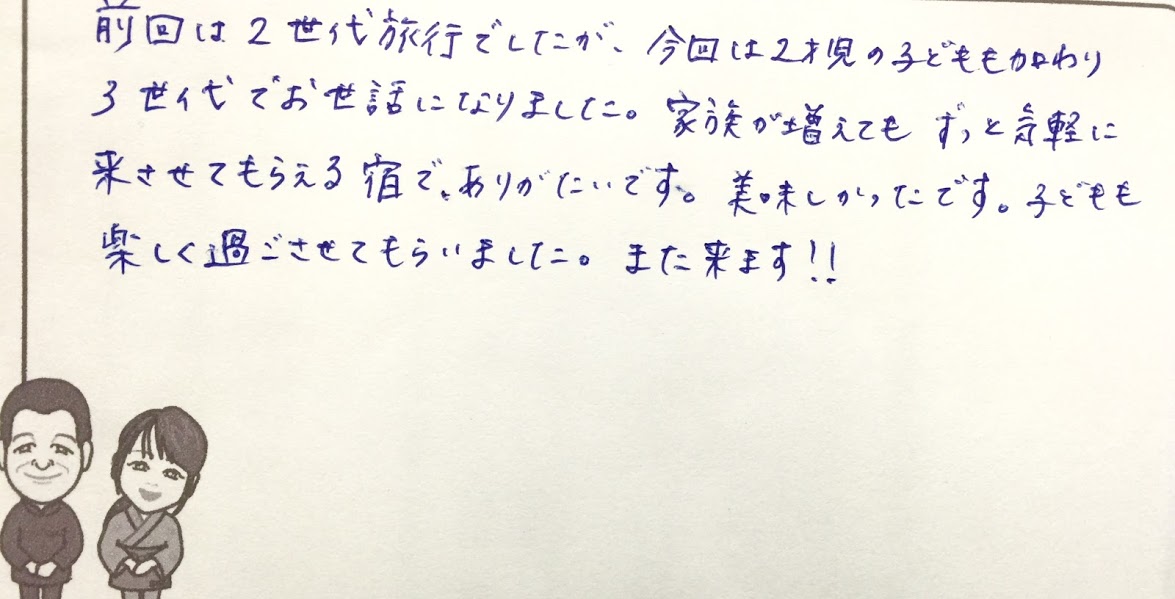 前回は2世代旅行でしたが、今回は2才児の子どもも加わり
3世代でお世話になりました。家族が増えてもずっと気軽に
来させてもらえる宿で、ありがたいです。美味しかったです。子どもも
楽しく過ごさせてもらいました。また来ます!!